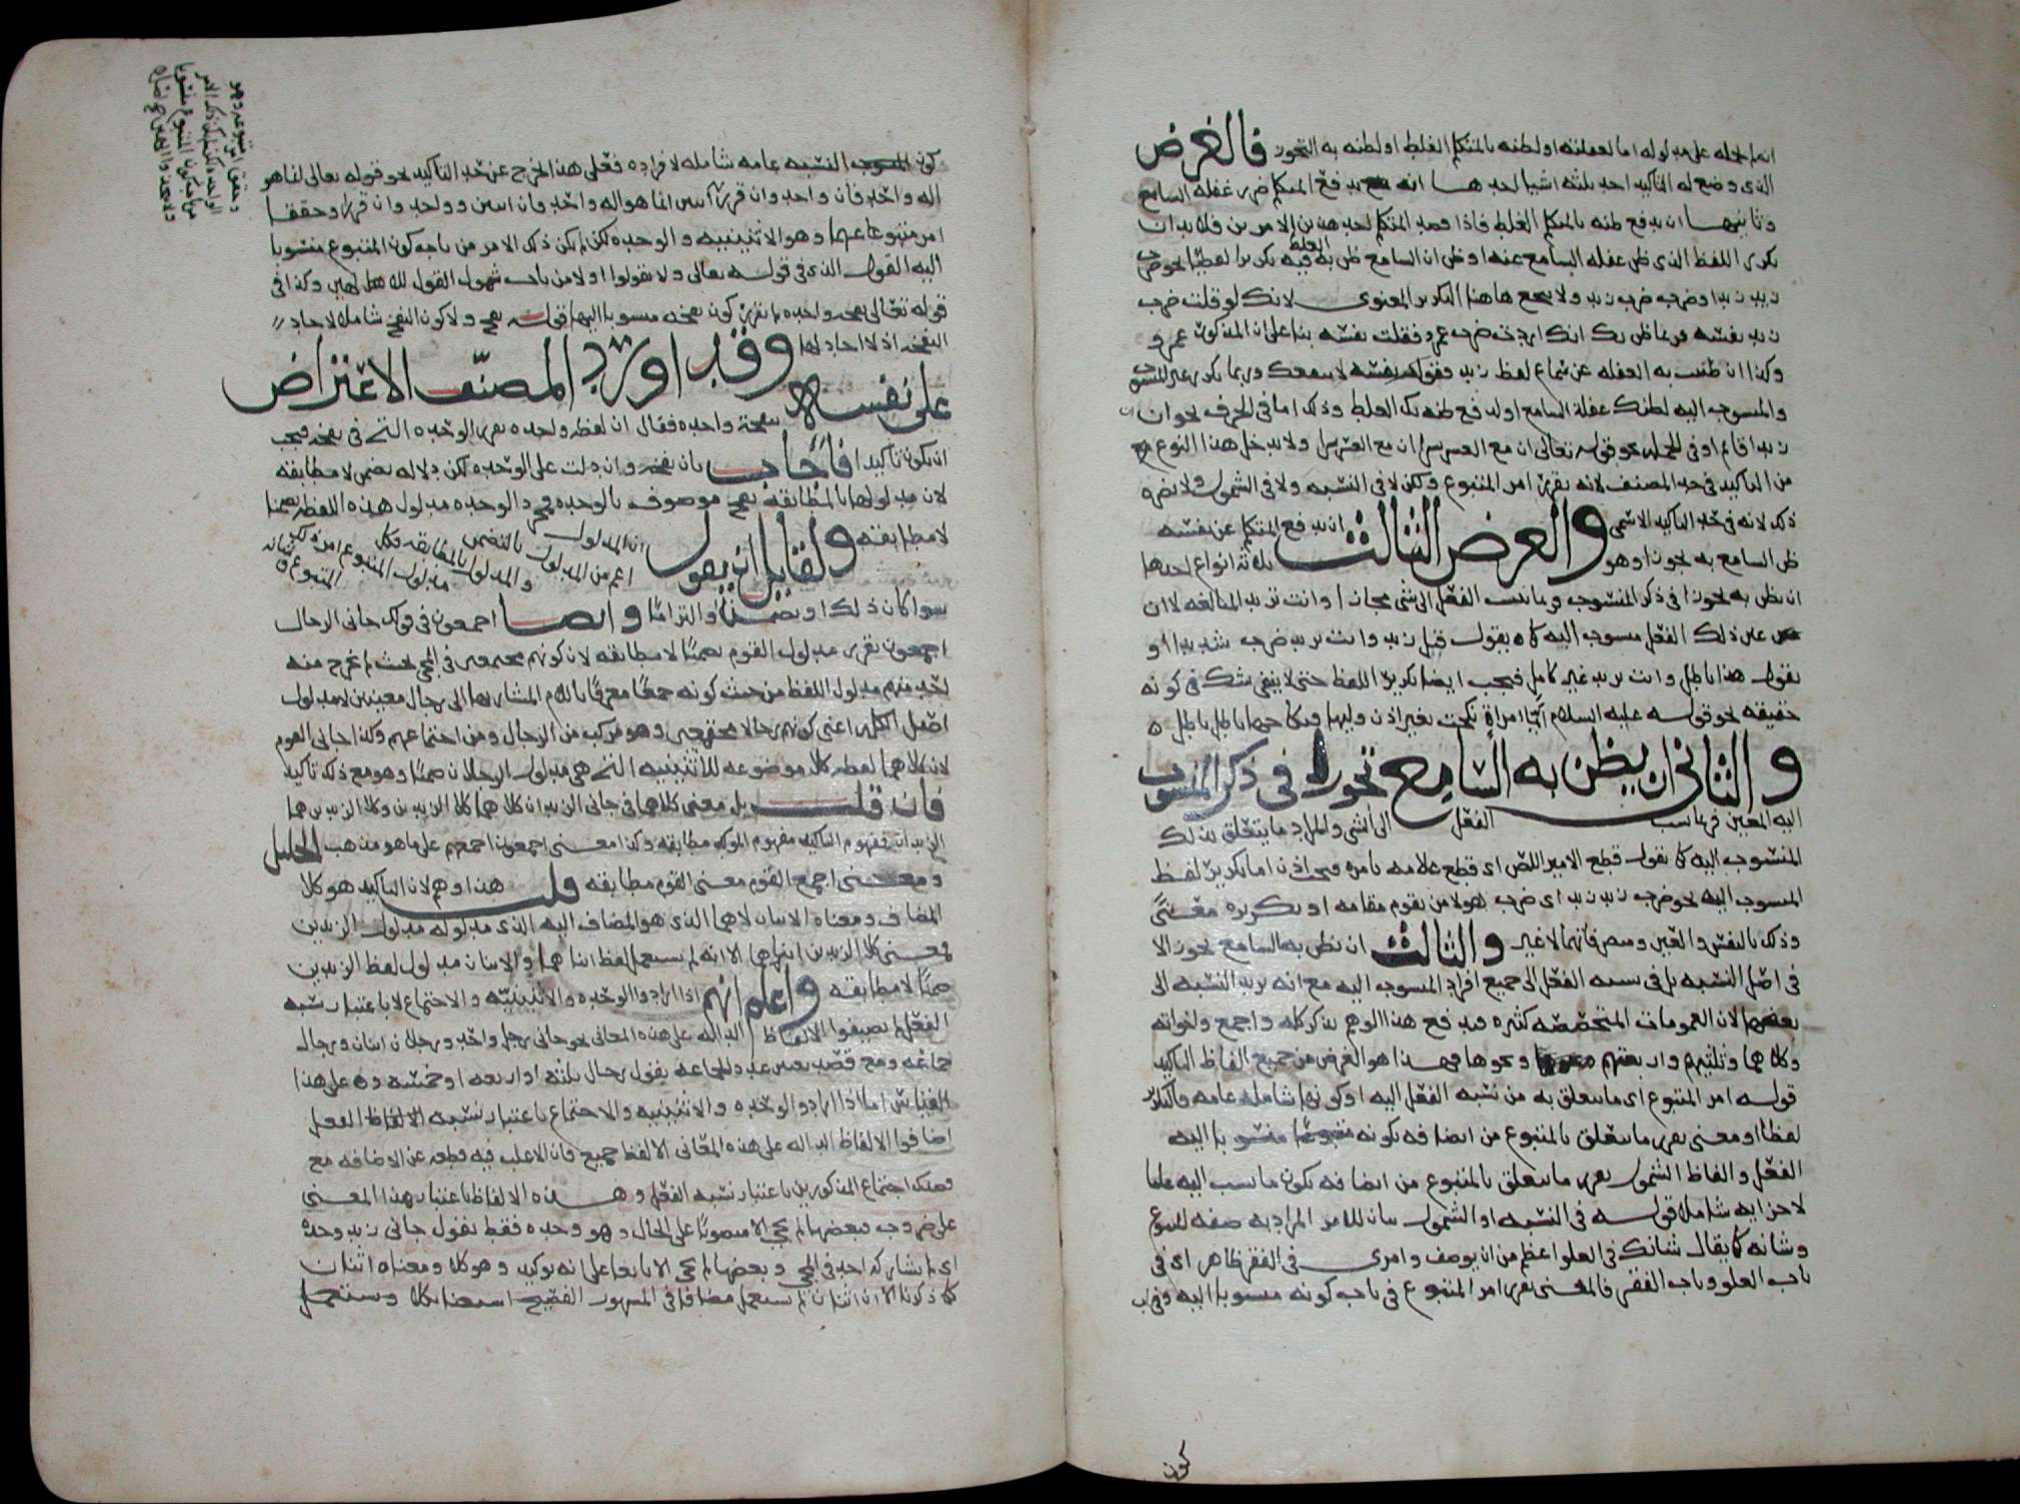 انه لم يحمله على مدلوله اما لغفلته او لظنه بالمتكلم الغلط او لظنه به التجوز فالغرض
الذى وضع له التاكيد احد ثلثه اشيا احدها ان يدفع المتكلم ضرر غفله السامع
وثانيها ان يدفع ظنه بالمتكلم الغلط فاذا قصد المتكلم احد هذين الامرين فلا بد ان
يكرر اللفظ الذى ظن غفله السامع عنه او ظن ان السامع ظن به الغلط فيه تكريرا لفظيا نحو ضرب
زيد زيد او ضرب ضرب زيد ولا ينجع هاهنا التكرير المعنوى لانك لو قلت ضرب
زيد نفسه فربما ظن بك انك اردت ضرب عمرو فقلت نفسه بنا على ان المذكور عمرو
وكذا ان ظننت به الغفله عن سماع لفظ زيد فقولك نفسه لا ينفعك وربما يكرر غير المنسوب
والمنسوب اليه لظنك غفلة السامع او لدفع ظنه بك الغلط وذلك اما فى الحرف نحو ان
زيدا قائم او فى الجمل نحو قوله تعالى ان مع العسر يسرا ان مع العسر يسرا ولا يدخل هذا النوع
من التاكيد فى حد المصنف لانه يقرر امر المتبوع ولكن لا فى النسبه ولا فى الشمول ولا يضره
ذلك لانه فى حد التاكيد الاسمى والغرض الثالث ان يدفع المتكلم عن نفسه
ظن السامع به تجوزا وهو ثلاثة انواع احدها
ان يظن به تجوزا فى ذكر المنسوب فربما نسب الفعل الى شى مجازا وانت تريد المبالغه لا ان
عين ذلك الفعل منسوب اليه كما تقول قتل زيد وانت تريد ضرب شديدا او
تقول هذا باطل وانت تريد غير كامل فيجب ايضا تكرير اللفظ حتى لا يبقى شك فى كونه
حقيقه نحو قوله عليه السلام ايما امراة نكحت بغير اذن وليها فنكاحها باطل باطل
والثانى ان يظن به السامع تجوزا فى ذكر المنسوب
اليه المعين فربما نسب الفعل الى الشى والمراد ما يتعلق بذلك
المنسوب اليه كما تقول قطع الامير اللص اى قطع غلامه بامره فيجب اذن اما تكرير لفظ
المنسوب اليه نحو ضرب زيد زيد اى ضرب هو لا من يقوم مقامه او تكريره معنىً
وذلك بالنفس والعين ومتصرفاتهما لا غير والثالث ان يظن به السامع تجوزا لا
فى اصل النسبه بل فى نسبه الفعل الى جميع افراد المنسوب اليه مع انه يريد النسبه الى
بعضها لان العمومات المتخصصه كثيره فيدفع هذا الوهم بذكر كله واجمع واخواته
وكلاهما وثلثتهم واربعتهم ونحوها فهذا هو الغرض من جميع الفاظ التاكيد
قوله امر المتبوع اى ما يتعلق به من نسبه الفعل اليه او كونها شامله عامه فالتاكيد
لفظا او معنى يقرر ما يتعلق بالمتبوع من اتصافه بكونه منسوبا اليه
الفعل والفاظ الشمول يقرر ما يتعلق بالمتبوع من اتصافه بكون ما نسب اليه عاما
لاجزائه شاملا قوله فى النسبه او الشمول بيان للامر المراد به صفه المتبوع
وشانه كما يقال شانك فى العلو اعظم من ان يوصف وامرى فى الفقر ظاهر اى فى
باب العلو وباب الفقر فالمعنى يقرر امر المتبوع فى باب كونه منسوبا اليه وفى باب
كون
كون النسبه عامه شامله لافراده فعلى هذا الخرج عن حد التاكيد نحو قوله تعالى انما هو
اله واحد فان واحد وان قرر الهين انما هو اله واحد فان اثنين وواحد وان قررا وحققا
امر متبوعاتهما وهو الاثنينيه والوحده لكن لم يكن ذلك الامر من باب كون المتبوع منسوبا
اليه القول الذى فى قوله تعالى ولا تقولوا ولا من باب شمول القول للالهين وكذا فى
قوله تعالى نفخه واحده لم تقرر كون نفخه منسوبا اليها قوله نفخ ولا كون النفخ شاملا لاحاد
النفخه اذ لا احاد لها وقد اورد المصنّف الاعتراض
على نفسه بنفخة واحده فقال ان لفظه واحده تقرر الوحده التى فى نفخه فيجب
ان يكون تاكيدا فاجاب بان نفخه وان دلت على الوحده لكن دلاله تضمن لا مطابقه
لان مدلولها بالمطابقه نفخ موصوف بالوحده فمجرد الوحده مدلول هذه اللفظه تضمنا
لا مطابقه ولقائل ان يقول ان المدلول اعم من المدلول بالتضمن
والمدلول بالمطابقه فكل مدلول المتبوع امر ذلك المتبوع وشانه
سوا كان ذلك او تضمنا او التزاما وايضا اجمعون فى قولك جانى الرجال
اجمعون تقرر مدلول القوم تضمنا لا مطابقه لان كونهم مجتمعين فى المجى بحيث لم يخرج منه
احد منهم مدلول اللفظ من حيث كونه جمعا معرفا باللام المشار بها الى رجال معينين لا مدلول
اصل الكلم اعنى كونهم رجالا مجتمعين وهو مركب من الرجال ومن اجتماعهم وكذا جانى القوم
كلاهما لفظه كلا موضوعه للاثنينيه التى هى مدلول الرجلان ضمنا وهو مع ذلك تاكيد
فان قلت بل معنى كلاهما فى جانى الزيدان كلاهما كلا الزيدين وكلا الزيدين هما
الزيدان فمفهوم التاكيد مفهوم الموكد مطابقه وكذا معنى اجمعون اجمعهم على ما هو مذهب الخليل
ومعنى اجمع القوم معنى القوم مطابقه قلت هذا وهم لان التاكيد هو كلا
المضاف ومعناه الاثنان لا هما الذى هو المضاف اليه الذى مدلوله مدلول الزيدين
فمعنى كلا الزيدين اثناهما الا انه لم يستعمل لفظ اثناهما والاثنان مدلول لفظ الزيدين
ضمنا لا مطابقه واعلم انهم اذا ارادوا الوحده والاثنينيّه والاجتماع لا باعتبار نسبه
الفعل لم يضيفوا الالفاظ الداله على هذه المعانى نحو جانى رجل واحد ورجلان اثنان ورجال
جماعه ومع قصد تعيين عدد الجماعه يقول رجال ثلثه او اربعه او خمسه وعلى هذا
القياس اما اذا ارادوا الوحده والاثنينيه والاجتماع باعتبار نسبه الفعل
اضافوا الالفاظ الداله على هذه المعانى الا لفظ جميع فان الاغلب فيه قطعه عن الاضافه مع
قصدك اجتماع المذكورين باعتبار نسبه الفعل وهذه الالفاظ باعتبار هذا المعنى
على ضروب فبعضها لم يجى الا منصوبا على الحال وهو وحده فقط تقول جانى زيد وحده
اى لم يشاركه احد فى المجى وبعضها لم يجى الا تابعا على انه توكيد وهو كلا ومعناه اثنان
كما ذكرنا الا ان اثنان لم يستعمل مضافا فى المشهور الفصيح استغناء بكلا وستعمل